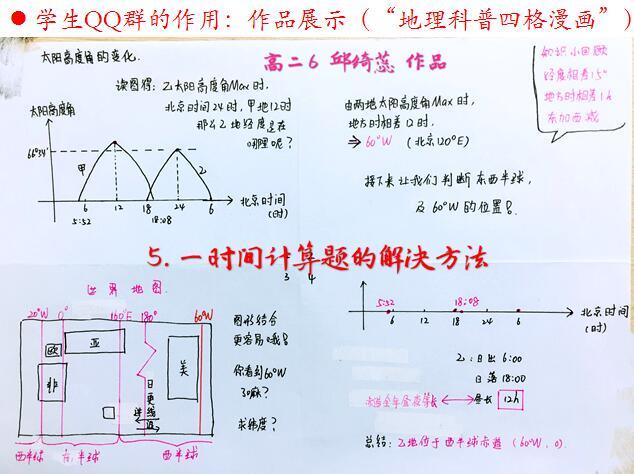 ● 学生QQ群的作用：作品展示（“地理科普四格漫画”）
太阳高度角的变化.
高二6 邱绮蕊 作品
读图得：乙太阳高度角Max时,
北京时间24时, 甲地12时
那么乙地经度是在
哪里呢？
太阳高度角
66°34′
甲
乙
6 12 18 24 6
5:52 18:08
北京时间
(时)
由两地太阳高度角Max时,
地方时相差12时.
⇒ 60°W (北京120°E)
接下来让我们判断东西半球,
及60°W的位置
知识小回顾
经度相差15°
地方时相差1h
东加西减
5. 一时间计算题的解决方法
3 4
世界地图.
20°W 0° 160°E 180° 60°W
欧 亚
非
美
日
更
线
西半球 东半球 西半球
图形结合
更容易哦！
你看到60°W
了吗？
求纬度？
5:52 18:08
6 12 18 24 6
北京时间
(时)
乙：日出 6:00
日落 18:00
赤道全年昼夜等长 ⟷ 昼长 12h
总结：乙地位于西半球赤道 (60°W, 0).